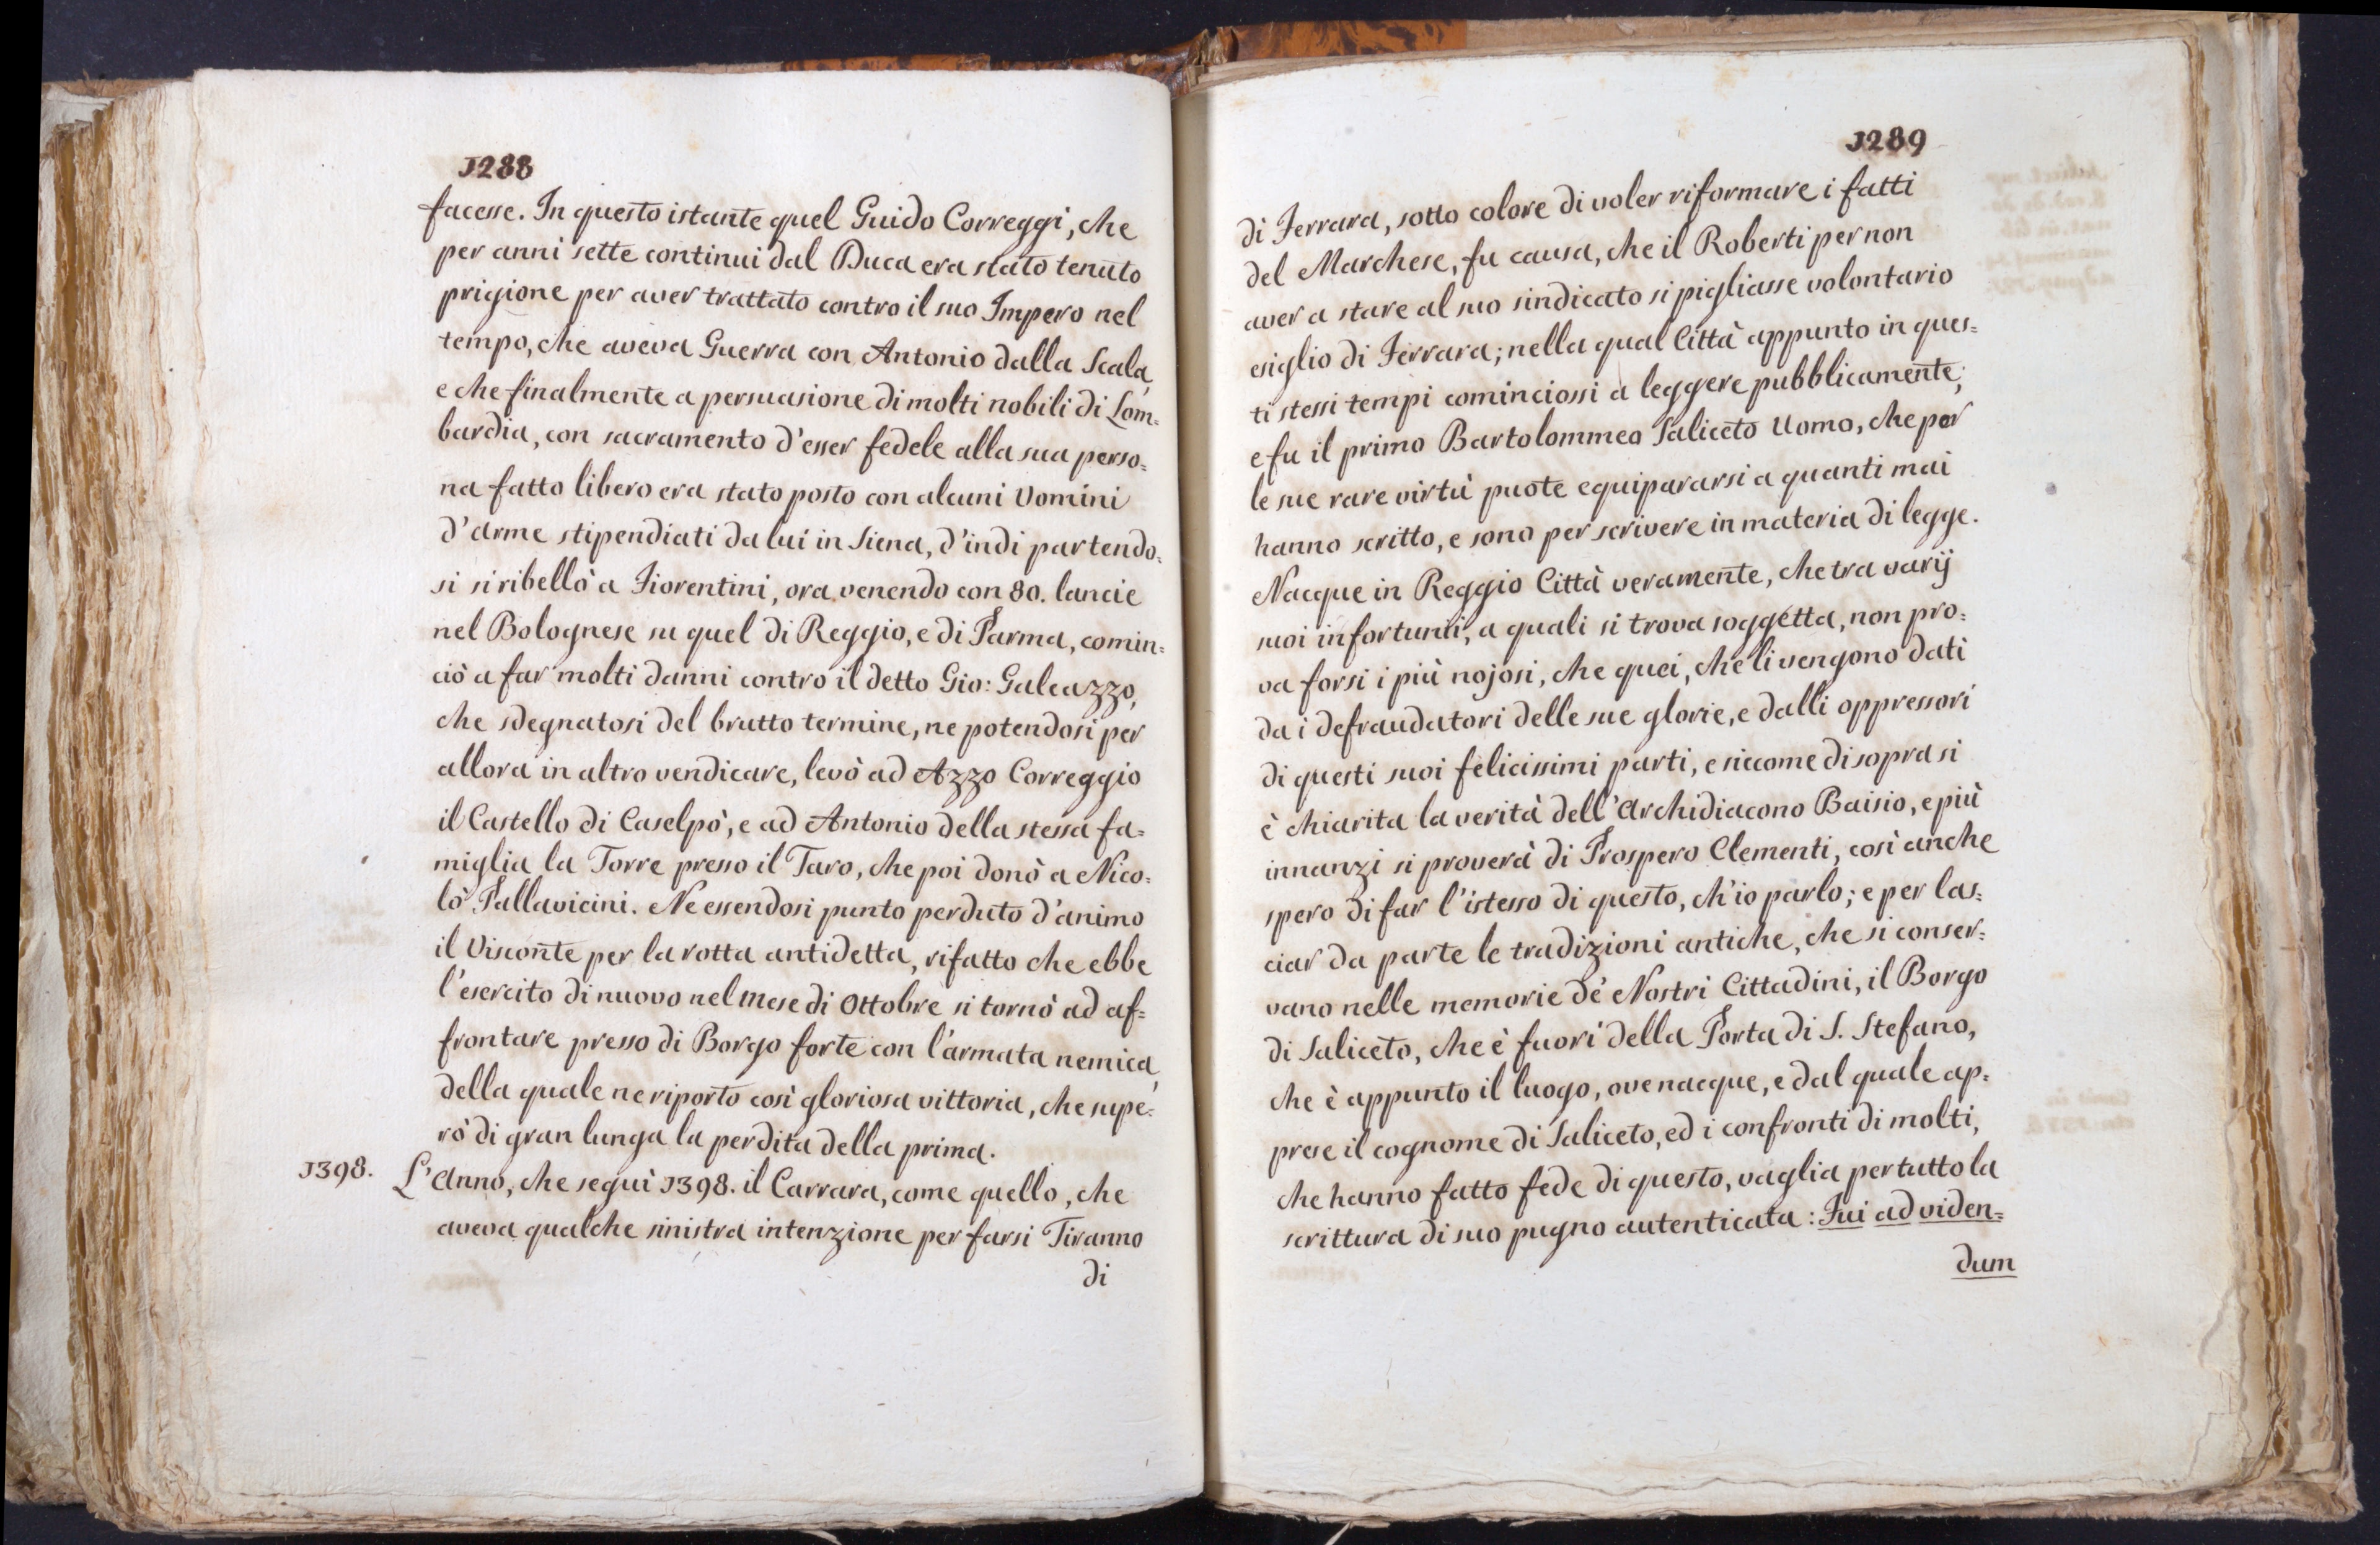 1288
facesse. In questo istante quel Guido Correggi, che
per anni sette continui dal Duca era stato tenuto
prigione per aver trattato contro il suo Impero nel
tempo, che aveva Guerra con Antonio dalla Scala,
e che finalmente a persuasione di molti nobili di Lom=
bardia, con sacramento d'esser fedele alla sua perso=
na fatto libero era stato posto con alcuni Uomini
d'arme stipendiati da lui in Siena, d'indi partendo=
si si ribellò a Fiorentini, ora venendo con 80. lancie
nel Bolognese su quel di Reggio, e di Parma, comin=
ciò a far molti danni contro il detto Gio: Galeazzo,
che sdegnatosi del brutto termine, ne potendosi per
allora in altro vendicare, levò ad Azzo Correggio
il Castello di Caselpò, e ad Antonio della stessa fa=
miglia la Torre presso il Taro, che poi donò a Nico=
lò Pallavicini. Ne essendosi punto perduto d'animo
il Visconte per la rotta antidetta, rifatto che ebbe
l'esercito di nuovo nel mese di Ottobre si tornò ad af=
frontare presso di Borgo forte con l'armata nemica,
della quale ne riportò così gloriosa vittoria, che supe=
rò di gran lunga la perdita della prima.
1398. L'Anno, che seguì 1398. il Carrara, come quello, che
aveva qualche sinistra intenzione per farsi Tiranno
di
1289
di Ferrara, sotto colore di voler riformare i fatti
del Marchese, fu causa, che il Roberti per non
aver a stare al suo sindicato si pigliasse volontario
esiglio di Ferrara; nella qual Città appunto in ques=
ti stessi tempi cominciossi a leggere pubblicamente;
e fu il primo Bartolommeo Saliceto Uomo, che per
le sue rare virtù puote equipararsi a quanti mai
hanno scritto, e sono per scrivere in materia di legge.
Nacque in Reggio Città veramente, che tra varij
suoi infortunii, a quali si trova soggetta, non pro=
va forsi i più nojosi, che quei, che li vengono dati
da i defraudatori delle sue glorie, e dalli oppressori
di questi suoi felicissimi parti, e siccome di sopra si
è chiarita la verità dell'Archidiacono Baisio, e più
innanzi si proverà di Prospero Clementi, così anche
spero di far l'istesso di questo, ch'io parlo; e per las=
ciar da parte le tradizioni antiche, che si conser=
vano nelle memorie de' Nostri Cittadini, il Borgo
di Saliceto, che è fuori della Porta di S. Stefano,
che è appunto il luogo, ove nacque, e dal quale ap=
prese il cognome di Saliceto, ed i confronti di molti,
che hanno fatto fede di questo, vaglia per tutto la
scrittura di suo pugno autenticata: Fui ad viden=
dum